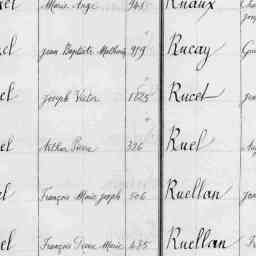 el Marie Ange 941 Ruaux
el Jean Baptiste Mathurin 919 Rucay
el Joseph Victor 1825 Rucet
el Arthur Pierre 326 Ruel
el François Marie Joseph 506 Ruellan
el François Pierre Marie 485 Ruellan